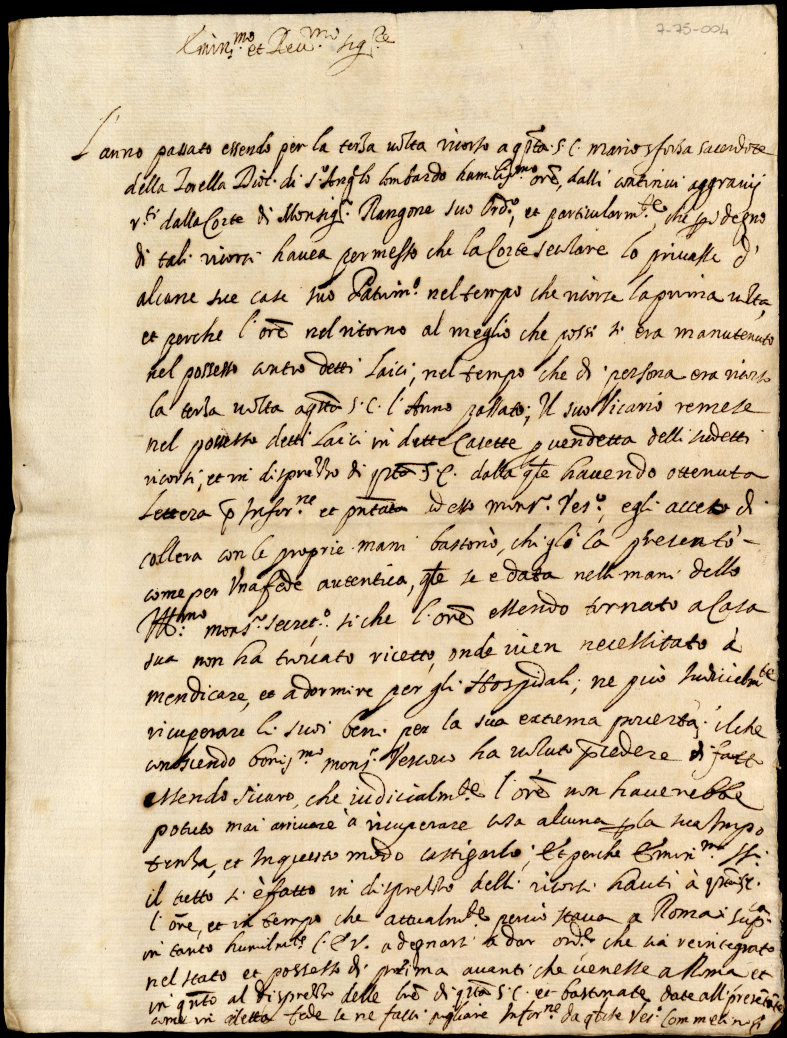 7-75-004
Emin.mo et Reu.mo Sig.re
L'anno passato essendo per la terza uolta ricorso a q.sta S. C. Mario Sforza sacerdote
della Torella Dioc. di S.to Ang.lo Lombardo humiliss.mo ore, dalli continui aggrauij
r.ti dalla Corte di Monsig.r Rangone suo Ord.o, et particularm.te, che p sdegno
di tali ricorsi hauea permesso che la Corte seculare lo priuasse d'
alcune sue case suo Patrim.o nel tempo che ricorse la prima uolta,
et perche l'ore nel ritorno al meglio che possi si era manutenuto
nel possesso contro detti Laici, nel tempo che di persona era ricorso
la terza uolta a q.sta S. C. l'Anno passato; Il suo Vicario remese
nel possesso detti Laici in dette Casette p uendetta delli sudetti
ricorsi, et in disprezzo di q.sta S. C. dalla q.le hauendo ottenuta
Lettera p Infor.ne et p.ntata ad esso Mons.r Ves.o, egli acceso di
collera con le proprie mani bastonò, chi glie la presentò
come per una fede autentica, q.le se e data nelli mani dello
Ill.mo Mons.r Secret.o, si che l'ore essendo tornato a Casa
sua non ha trouato ricetto, onde uien necessitato à
mendicare, et a dormire per gli Hospidali; ne può Iudicialm.te
ricuperare li suoi beni per la sua extrema pouertà; il che
conoscendo boniss.mo Mons.r Vescouo ha uoluto p.cedere di fatto
essendo sicuro, che iudicialm.te l'ore non hauerebbe
potuto mai arriuare à ricuperare cosa alcuna p la sua Impo
tenza, et In questo modo castigarlo; Et perche Emin.mi SS.ri
il tutto si è fatto in disprezzo delli ricorsi hauti à q.sta S. C.
l'ore, et in tempo che attualm.te perciò staua a Roma; sup.ca
in tanto humilm.te l'EE. VV. a degnarsi a dar ord.e che sia reintegrato
nel stato et possesso di prima auanti che uenesse a Roma et
in q.nto al disprezzo delle lre di q.sta S. C. et bastonate date all'presentante
come in detta fede se ne facci pigliare Infor.ne da q.lche Ves.o